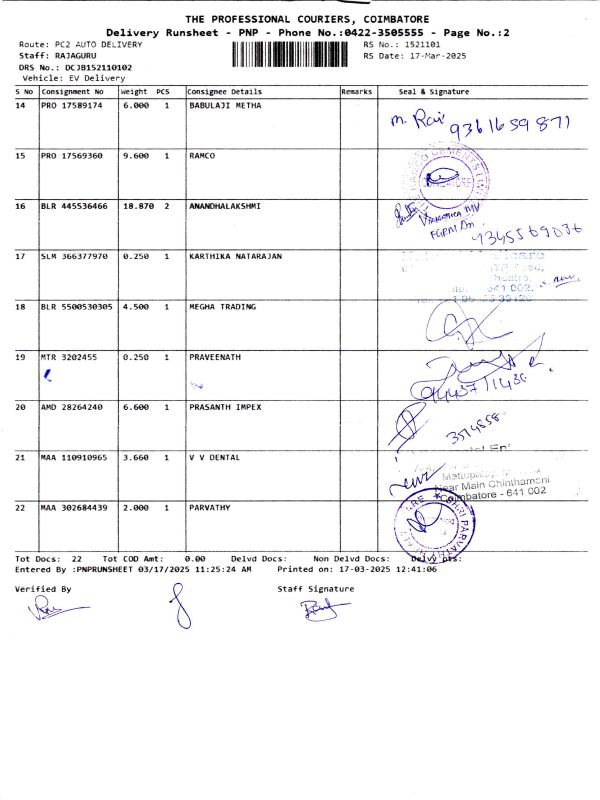 THE PROFESSIONAL COURIERS, COIMBATORE
Delivery Runsheet - PNP - Phone No.:0422-3505555 - Page No.:2
Route: PC2 AUTO DELIVERY RS No.: 1521101
Staff: RAJAGURU RS Date: 17-Mar-2025
DRS No.: DCJB152110102
Vehicle: EV Delivery
S No Consignment No Weight PCS Consignee Details Remarks Seal & Signature
14 PRO 17589174 6.000 1 BABULAJI METHA
m. Ravi 9361659871
15 PRO 17569360 9.600 1 RAMCO
16 BLR 445536466 18.870 2 ANANDHALAKSHMI
9345569036
17 SLM 366377970 0.250 1 KARTHIKA NATARAJAN
641 002.
18 BLR 5500530305 4.500 1 MEGHA TRADING
19 MTR 3202455 0.250 1 PRAVEENATH
20 AMD 28264240 6.600 1 PRASANTH IMPEX
3514558
21 MAA 110910965 3.660 1 V V DENTAL
Near Main Chinthamani
Coimbatore - 641 002
22 MAA 302684439 2.000 1 PARVATHY
Tot Docs: 22 Tot COD Amt: 0.00 Delvd Docs: Non Delvd Docs: Delvy pts:
Entered By :PNPRUNSHEET 03/17/2025 11:25:24 AM Printed on: 17-03-2025 12:41:06
Verified By Staff Signature